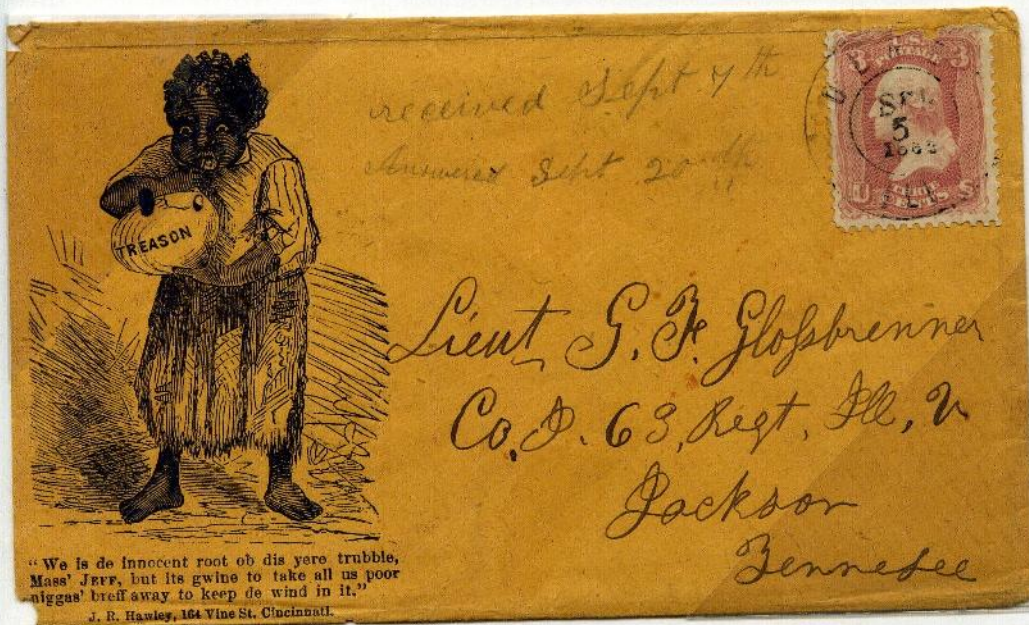 received Sept 7th
Answered Sept 20th
3 3
SEP.
5
U S
TREASON
Lieut G. F. Gloſsbrenner
Co, 63, Regt, Ill, V
Jackson
Tennesee
“We is de innocent root ob dis yere trubble,
Mass' JEFF, but its gwine to take all us poor
niggas' breff away to keep de wind in it.”
J. R. Hawley, 164 Vine St. Cincinnati.